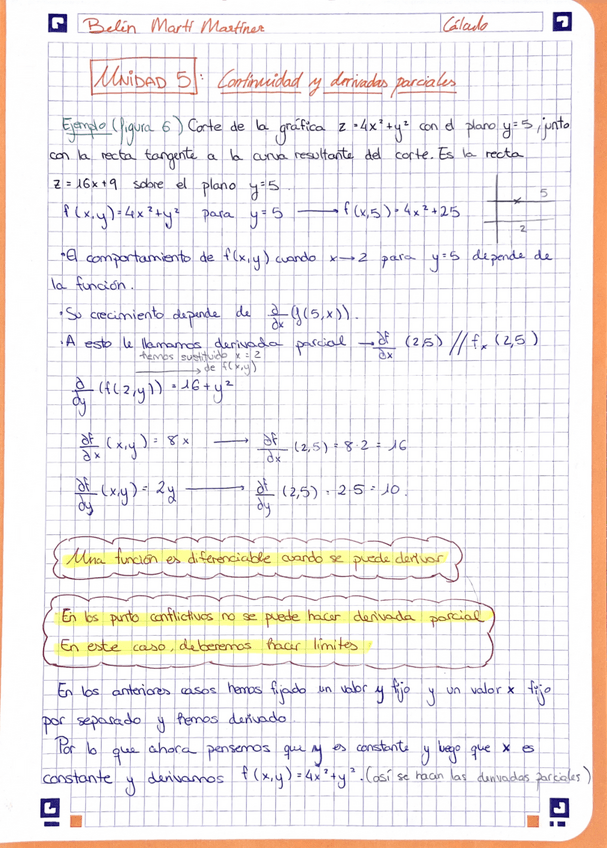 Belén Martí Martínez Cálculo
UNIDAD 5: Continuidad y derivadas parciales
Ejemplo (figura 6) Corte de la gráfica z = 4x² + y² con el plano y=5, junto
con la recta tangente a la curva resultante del corte. Es la recta
z = 16x+9 sobre el plano y=5.
f(x,y) = 4x² + y² para y=5 → f(x,5) = 4x² + 25
5
2
· El comportamiento de f(x,y) cuando x→2 para y=5 depende de
la función.
· Su crecimiento depende de ∂/dx (f(5,x)).
· A esto le llamamos derivada parcial → ∂f/dx (2,5) // fx (2,5)
hemos sustituido x = 2
→ de f(x,y)
∂/dy (f(2,y)) = 16 + y²
∂f/dx (x,y) = 8x → ∂f/dx (2,5) = 8·2 = 16
∂f/dy (x,y) = 2y → ∂f/dy (2,5) = 2·5 = 10.
Una función es diferenciable cuando se puede derivar
En los punto conflictivos no se puede hacer derivada parcial
En este caso, deberemos hacer límites
En los anteriores casos hemos fijado un valor y fijo y un valor x fijo
por separado y hemos derivado.
Por lo que ahora pensemos que y es constante y luego que x es
constante y derivamos f(x,y) = 4x² + y². (así se hacen las derivadas parciales)